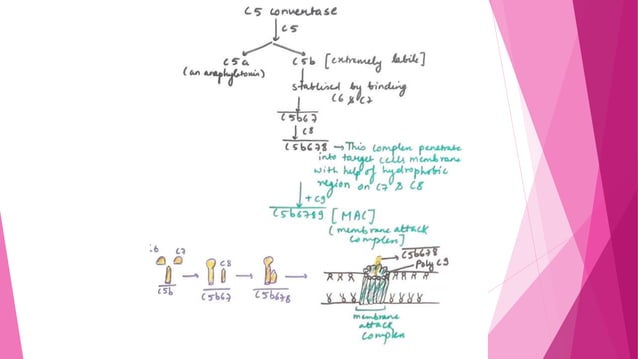 C5 conventase
C5
C5a
(an anaphylatoxin)
C5b [extremely labile]
stablised by binding
C6 & C7
C5b67
C8
C5b678 → This complex penetrate
into target cells membrane
with help of hydrophobic
region on C7 & C8
+ C9
C5b6789 [MAC]
(membrane attack
complex]
C7
C5b
C8
C5b67
C5b678
C5b678
Poly C9
membrane
attack
complex